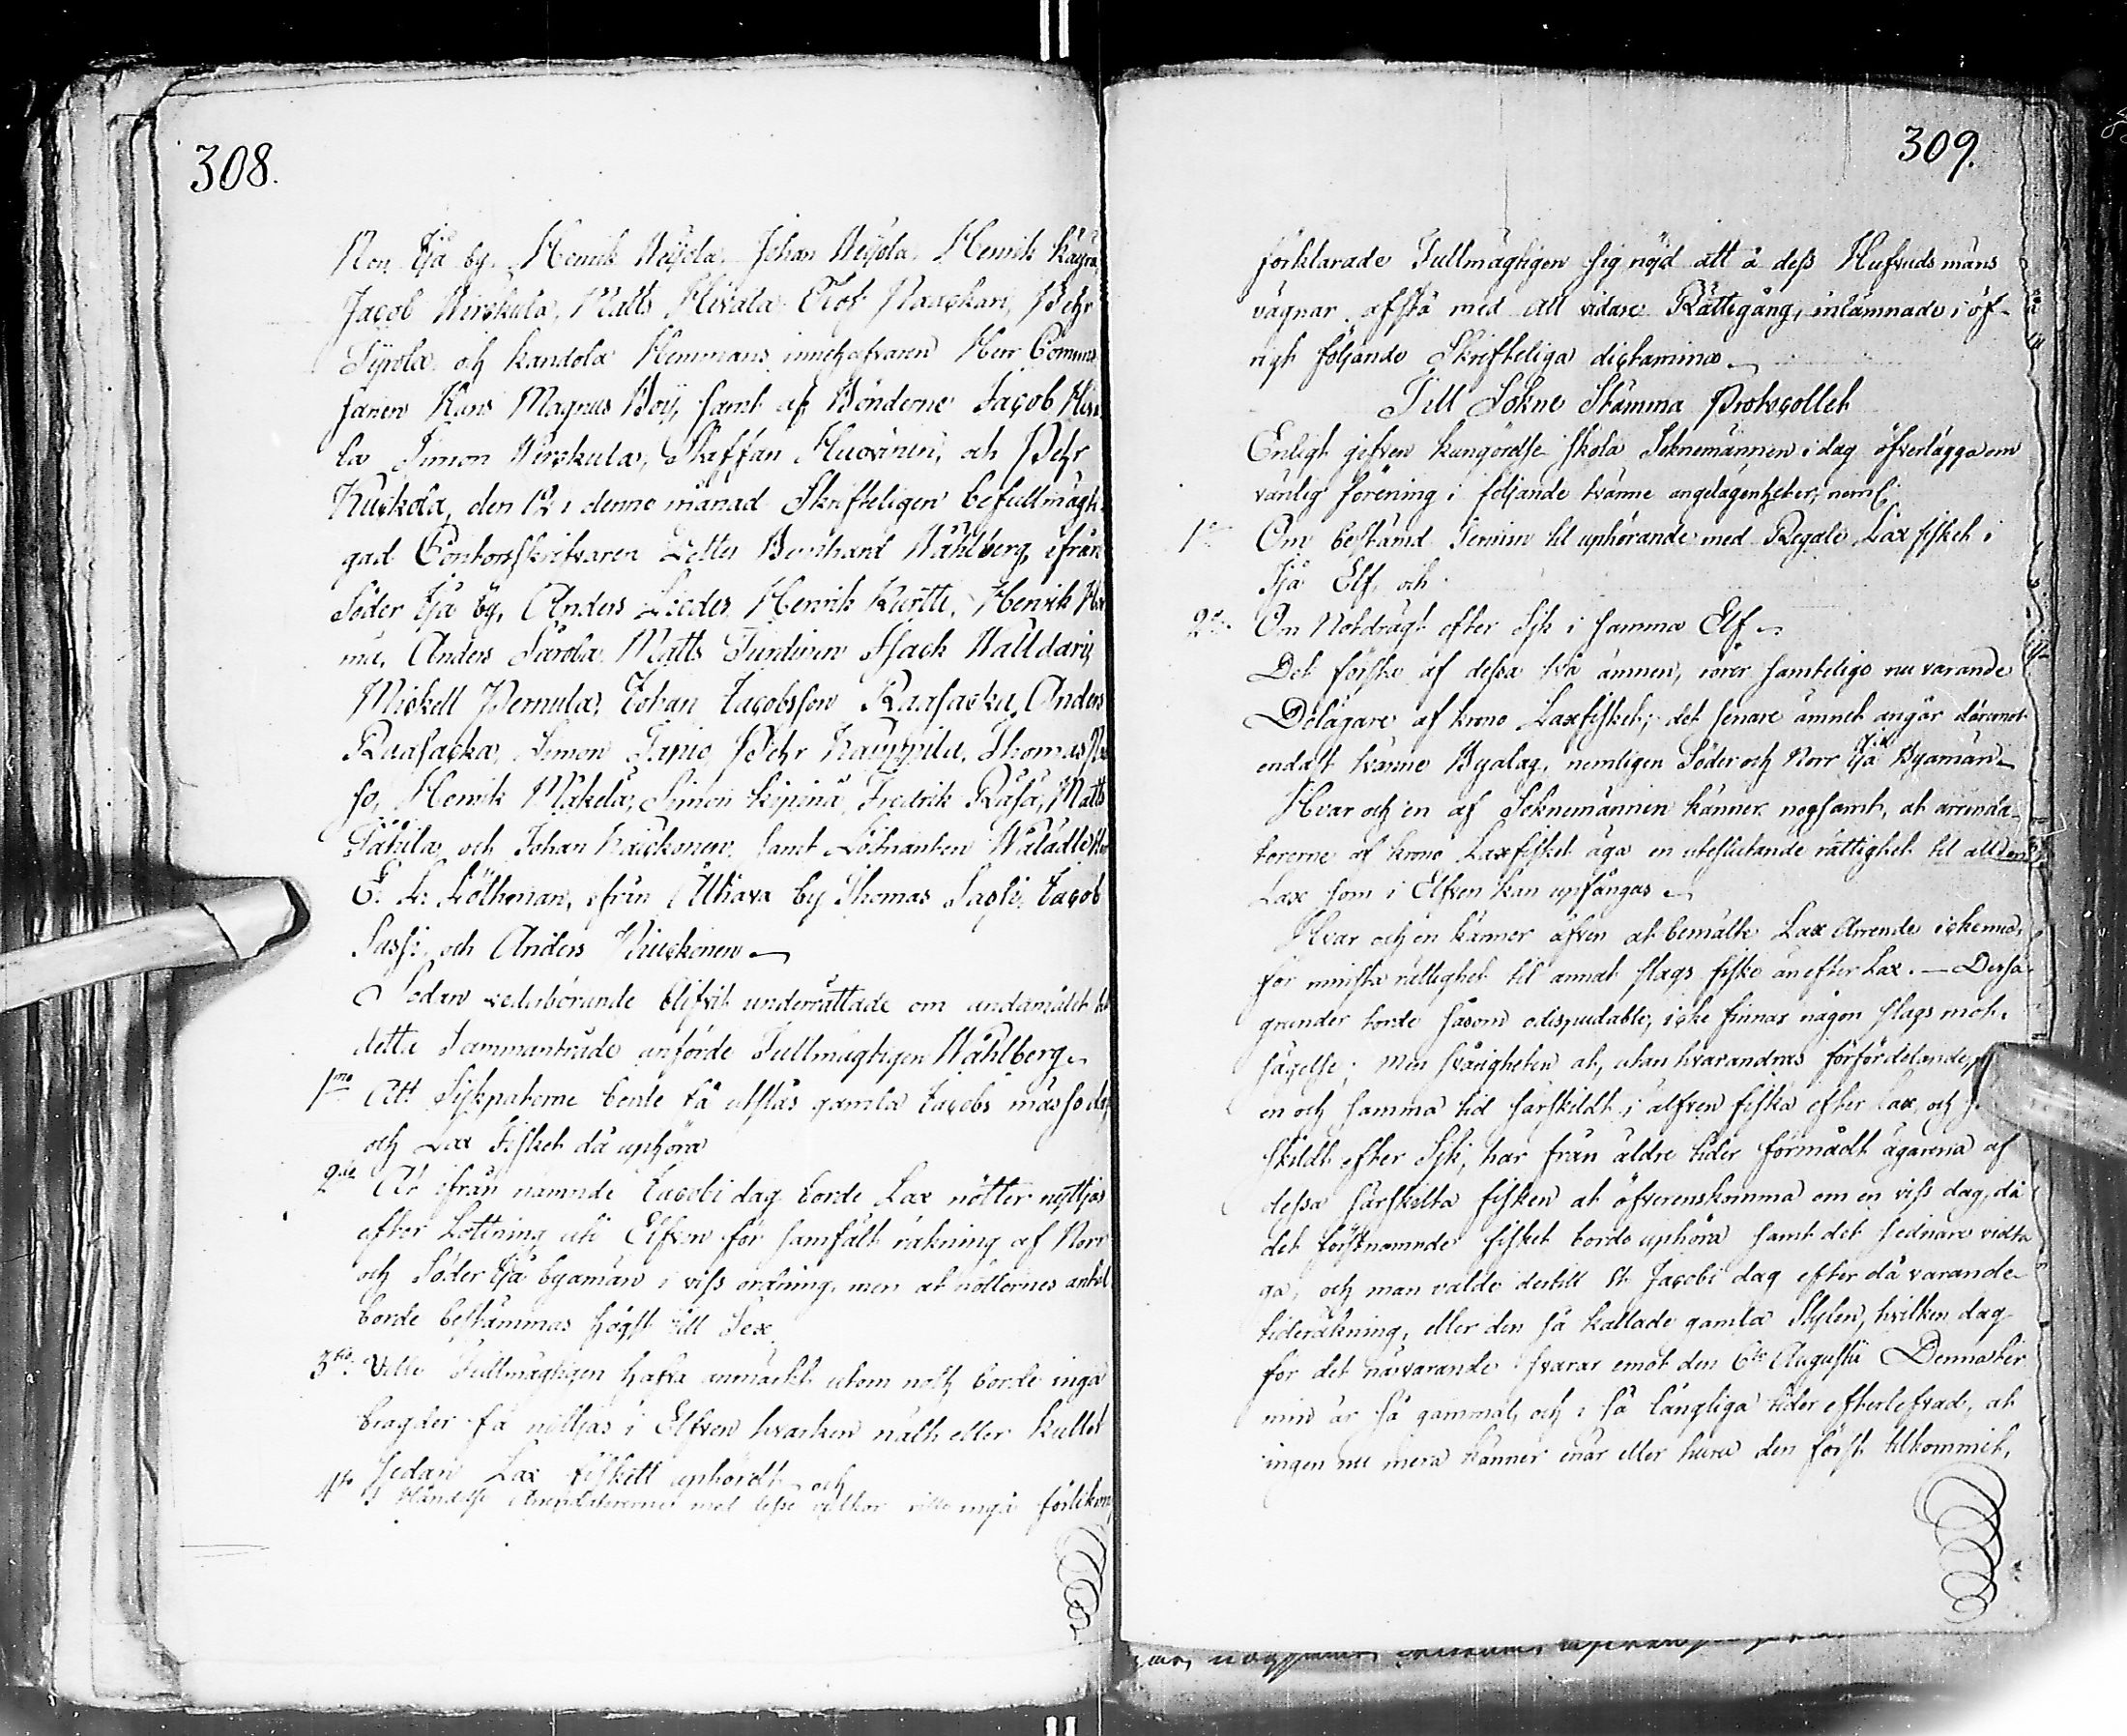 308.
Norr Ijå by, Henrik Weijola, Johan Weijola, Henrik Käyrä,
Jacob Wirskula, Matts Hivala, Olof Naackari, Pehr
Tyrola, och Kandola Hemmans innehafvaren Herr Commis-
sarien Hans Magnus Boy, samt af Bönderne Jacob
la Simon Wirskula, Staffan Huovinen, och Pehr
Kuckola, den 12 i denne månad Skrifteligen befullmägti-
gad Contorsskrifvaren Petter Bernhard Wåhlberg, ifrån
Söder Ijå by, Anders Liedes, Henrik Kurtti, Henrik
mä, Anders Särola, Matts Turdinen Isack Walldari,
Mickell Pernula, Johan Jacobsson Raasacka, Anders
Raasacka, Simon Janio, Pehr Kauppila, Thomas
so, Henrik Mäkelä, Simon Kipinä, Fredrik Räsä, Matts
Päkila, och Johan Kaickonen, samt Löitnanten Wälädle Herr
E. L. Löthman, ifrån Ålhava by Thomas Sassi, Jacob
Sassi, och Anders Kiuckonen
Sedan vederbörande blifvit underrättade om ändamålet till
detta Sammanträde anförde Fullmägtigen Wåhlberg
1mo Att Sijkpaterne borde få utslås gamla Jacobs mässo dag
och Lax Fisket då uphöra
2do At ifrån nämnde Jacobi dag borde Lax nötter nyttjas
efter Lottning uti Elfven för samfält räkning af Norr
och Söder Ijå byamän i viss ordning, men at nötternes antal
borde bestämmas högst till Sex
3tio Ville Fullmägtigen hafva anmärkt utom noth borde inga
bragder få nyttjas i Elfven hvarken näth eller kullet
Sedan Lax fiskett uphördt, och
4to I Händelse Arendatorerne med desse vilkor ville ingå förlikning
309.
förklarade Fullmägtigen sig nöjd att å dess Hufvudsmäns
vägnar afstå med all vidare Rättegång, inlämnade i öf-
rigt följande Skrifteliga dictamina
Till Sokne Stämma Protocollet
Enligt gifven kungörelse skola Soknemännen i dag öfverlägga om
vänlig förening i följande tvänne angelägenheter, neml:
1o Om bestämd Termin til uphörande med Regale Lax fisket i
Ijå Elf, och
2o Om Notdrägt efter Sik i samma Elf
Det förste af dessa två ämnen, rörer samtelige nu varande
Delägare af krono Laxfisket; det senare ämnet angår däremot
endast tvänne Byalag, nemligen Söder och Norr Ijå Byamän
Hvar och en af Soknemännen känner nogsamt, at arrenda-
torerne af krono Laxfisket äga en uteslutande rättighet til all den
Lax som i Elfven kan upfångas
Hvar och en känner äfven at bemälte Lax Arrende icke med-
för minsta rättighet til annat slags fiske än efter Lax. — Dessa
grunder torde såsom odisputable, icke finnas någon slags mot-
sägelse; Men svårigheten at, utan hvarandras förfördelande,
en och samma tid särskildt i älfven fiska efter Lax, och
skildt efter Sik, har från äldre tider förmådt ägarena af
dessa särskilta fisken at öfverenskomma om en viss dag, då
det förstnämnde fisket borde uphöra samt det sednare vidta
ga, och man valde dertill St. Jacobi dag efter då varande
tideräkning, eller den så kallade gamla Stylen, hvilken dag
för det närvarande svarar emot den 6te Augusti Denna ter
min är så gammal, och i så långliga tider efterlefvad, at
ingen nu mera känner enär eller huru den först tilkommit,